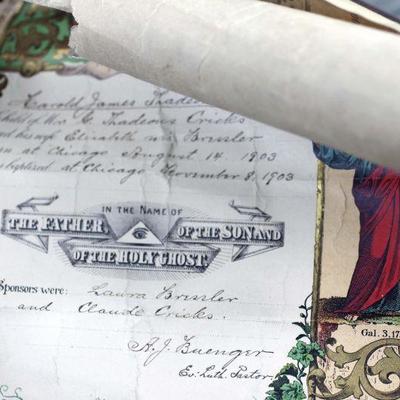 Harold James Thadeous
child of Mr. C. Thadeous Cricks
and his wife Elizabeth née Bressler
at Chicago August 14, 1903
baptized at Chicago November 8, 1903
IN THE NAME OF
THE FATHER, OF THE SON AND
OF THE HOLY GHOST.
Sponsors were: Laura Bressler
and Claude Cricks.
A. J. Buenger
Ev. Luth. Pastor
Gal. 3,